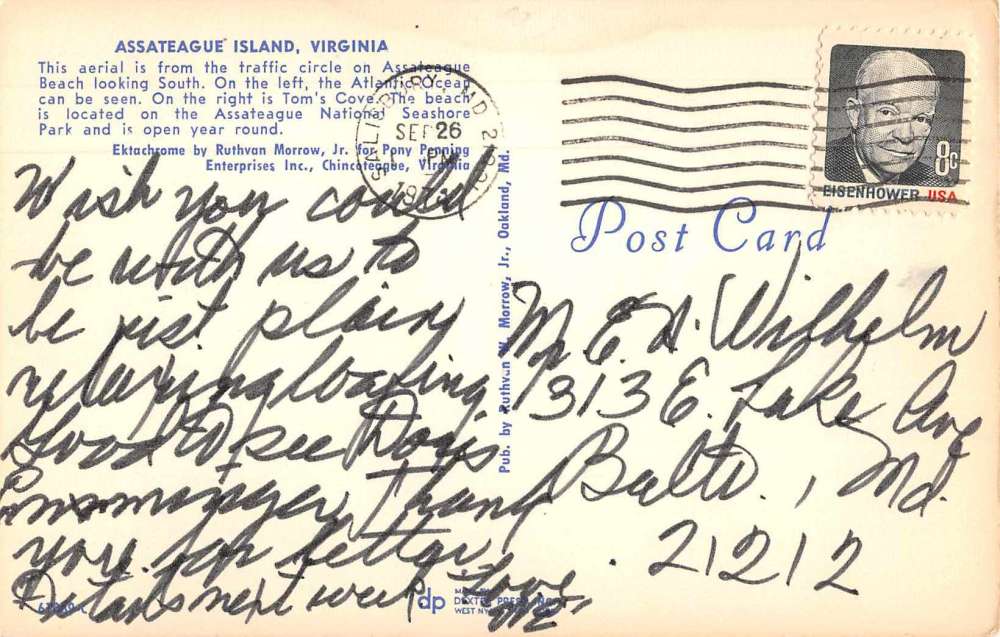 ASSATEAGUE ISLAND, VIRGINIA
This aerial is from the traffic circle on Assateague
Beach looking South. On the left, the Atlantic Ocean
can be seen. On the right is Tom's Cove. The beach
is located on the Assateague National Seashore
Park and is open year round.
Ektachrome by Ruthvan Morrow, Jr. for Pony Penning
Enterprises Inc., Chincoteague, Virginia
Wish you could
be with us to
be just plain
relaxing loafing.
Good to see Doris
Ensminger. Thank
you for letter.
next week Love
SALISBURY, MD
SEP 26
PM
EISENHOWER USA
8c
Post Card
Pub. by Ruthvan W. Morrow, Jr., Oakland, Md.
Mr. E. H. Wilhelm
313 E. Lake Ave
Balto., Md.
21212
dp
DEXTER PRESS, INC.
WEST NY